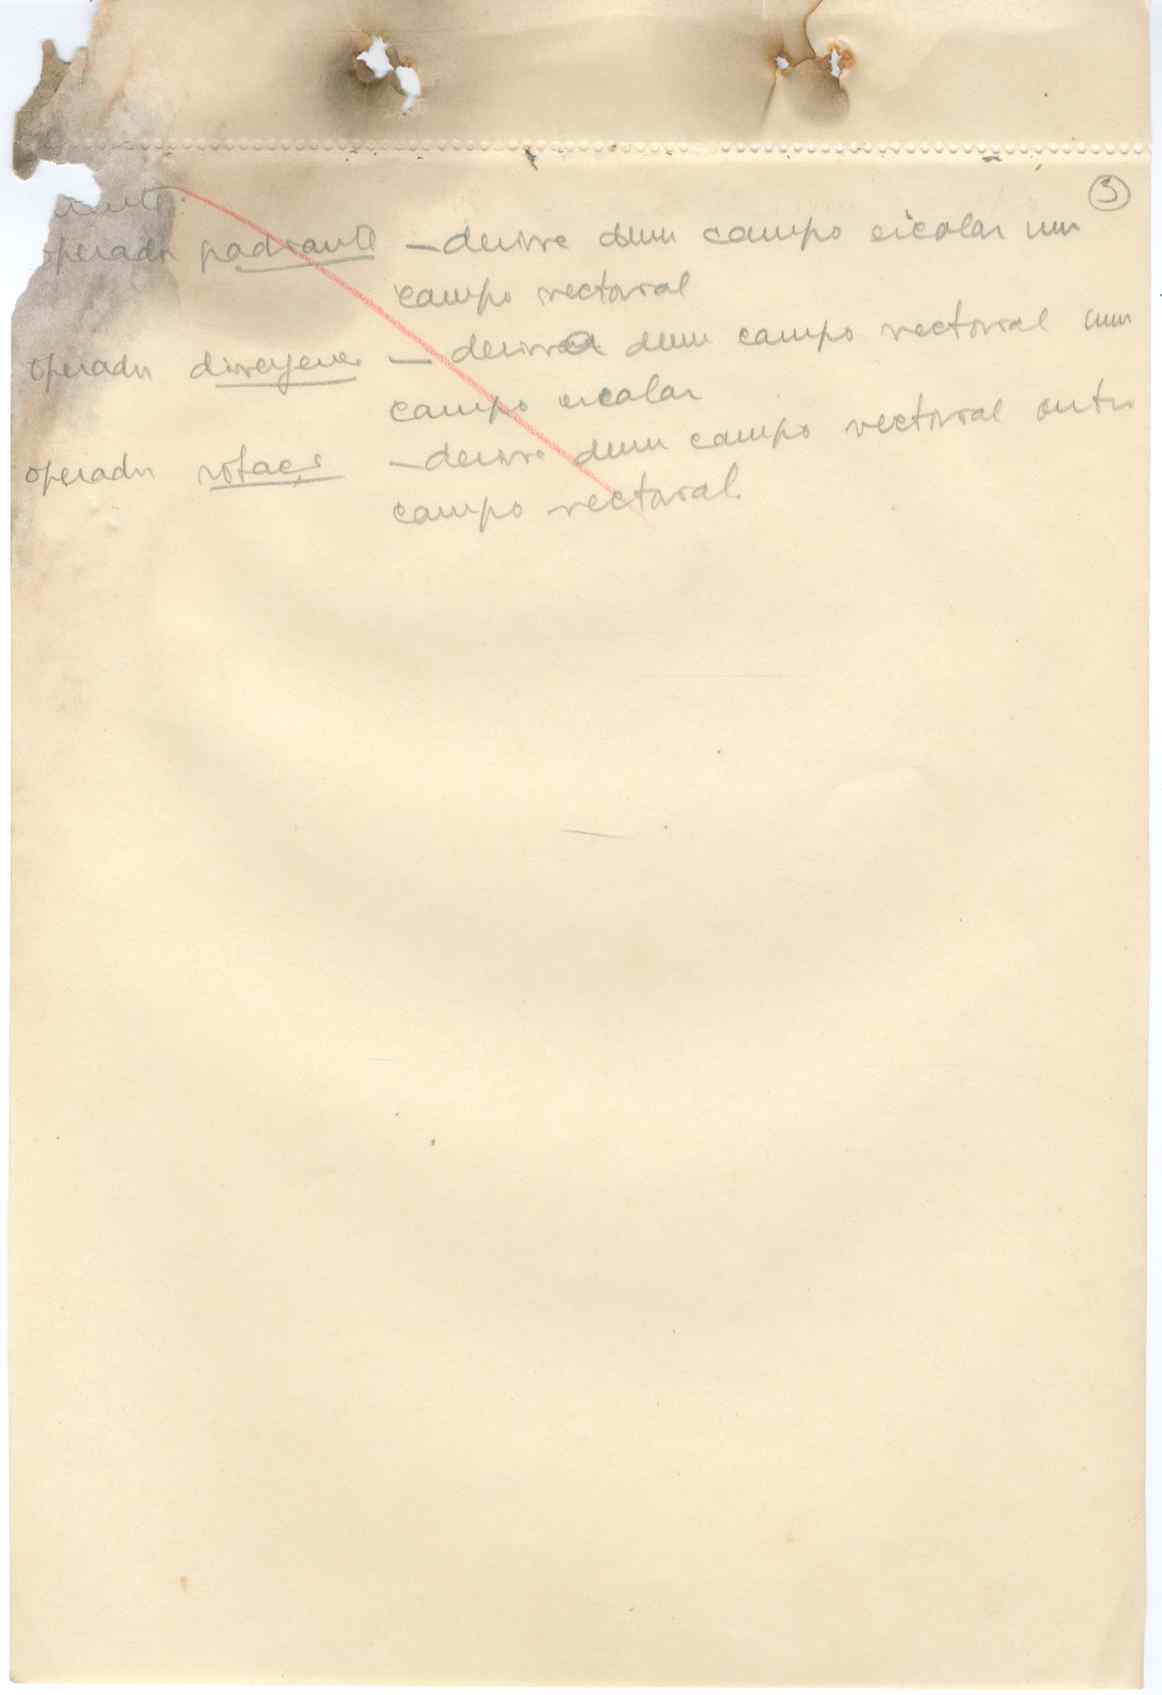 3
operador gradiante — derive dum campo escalar um
campo vectorial
operador divergene — deriva dum campo vectorial um
campo escalar
operador rotaç. — derive dum campo vectorial outro
campo vectorial.